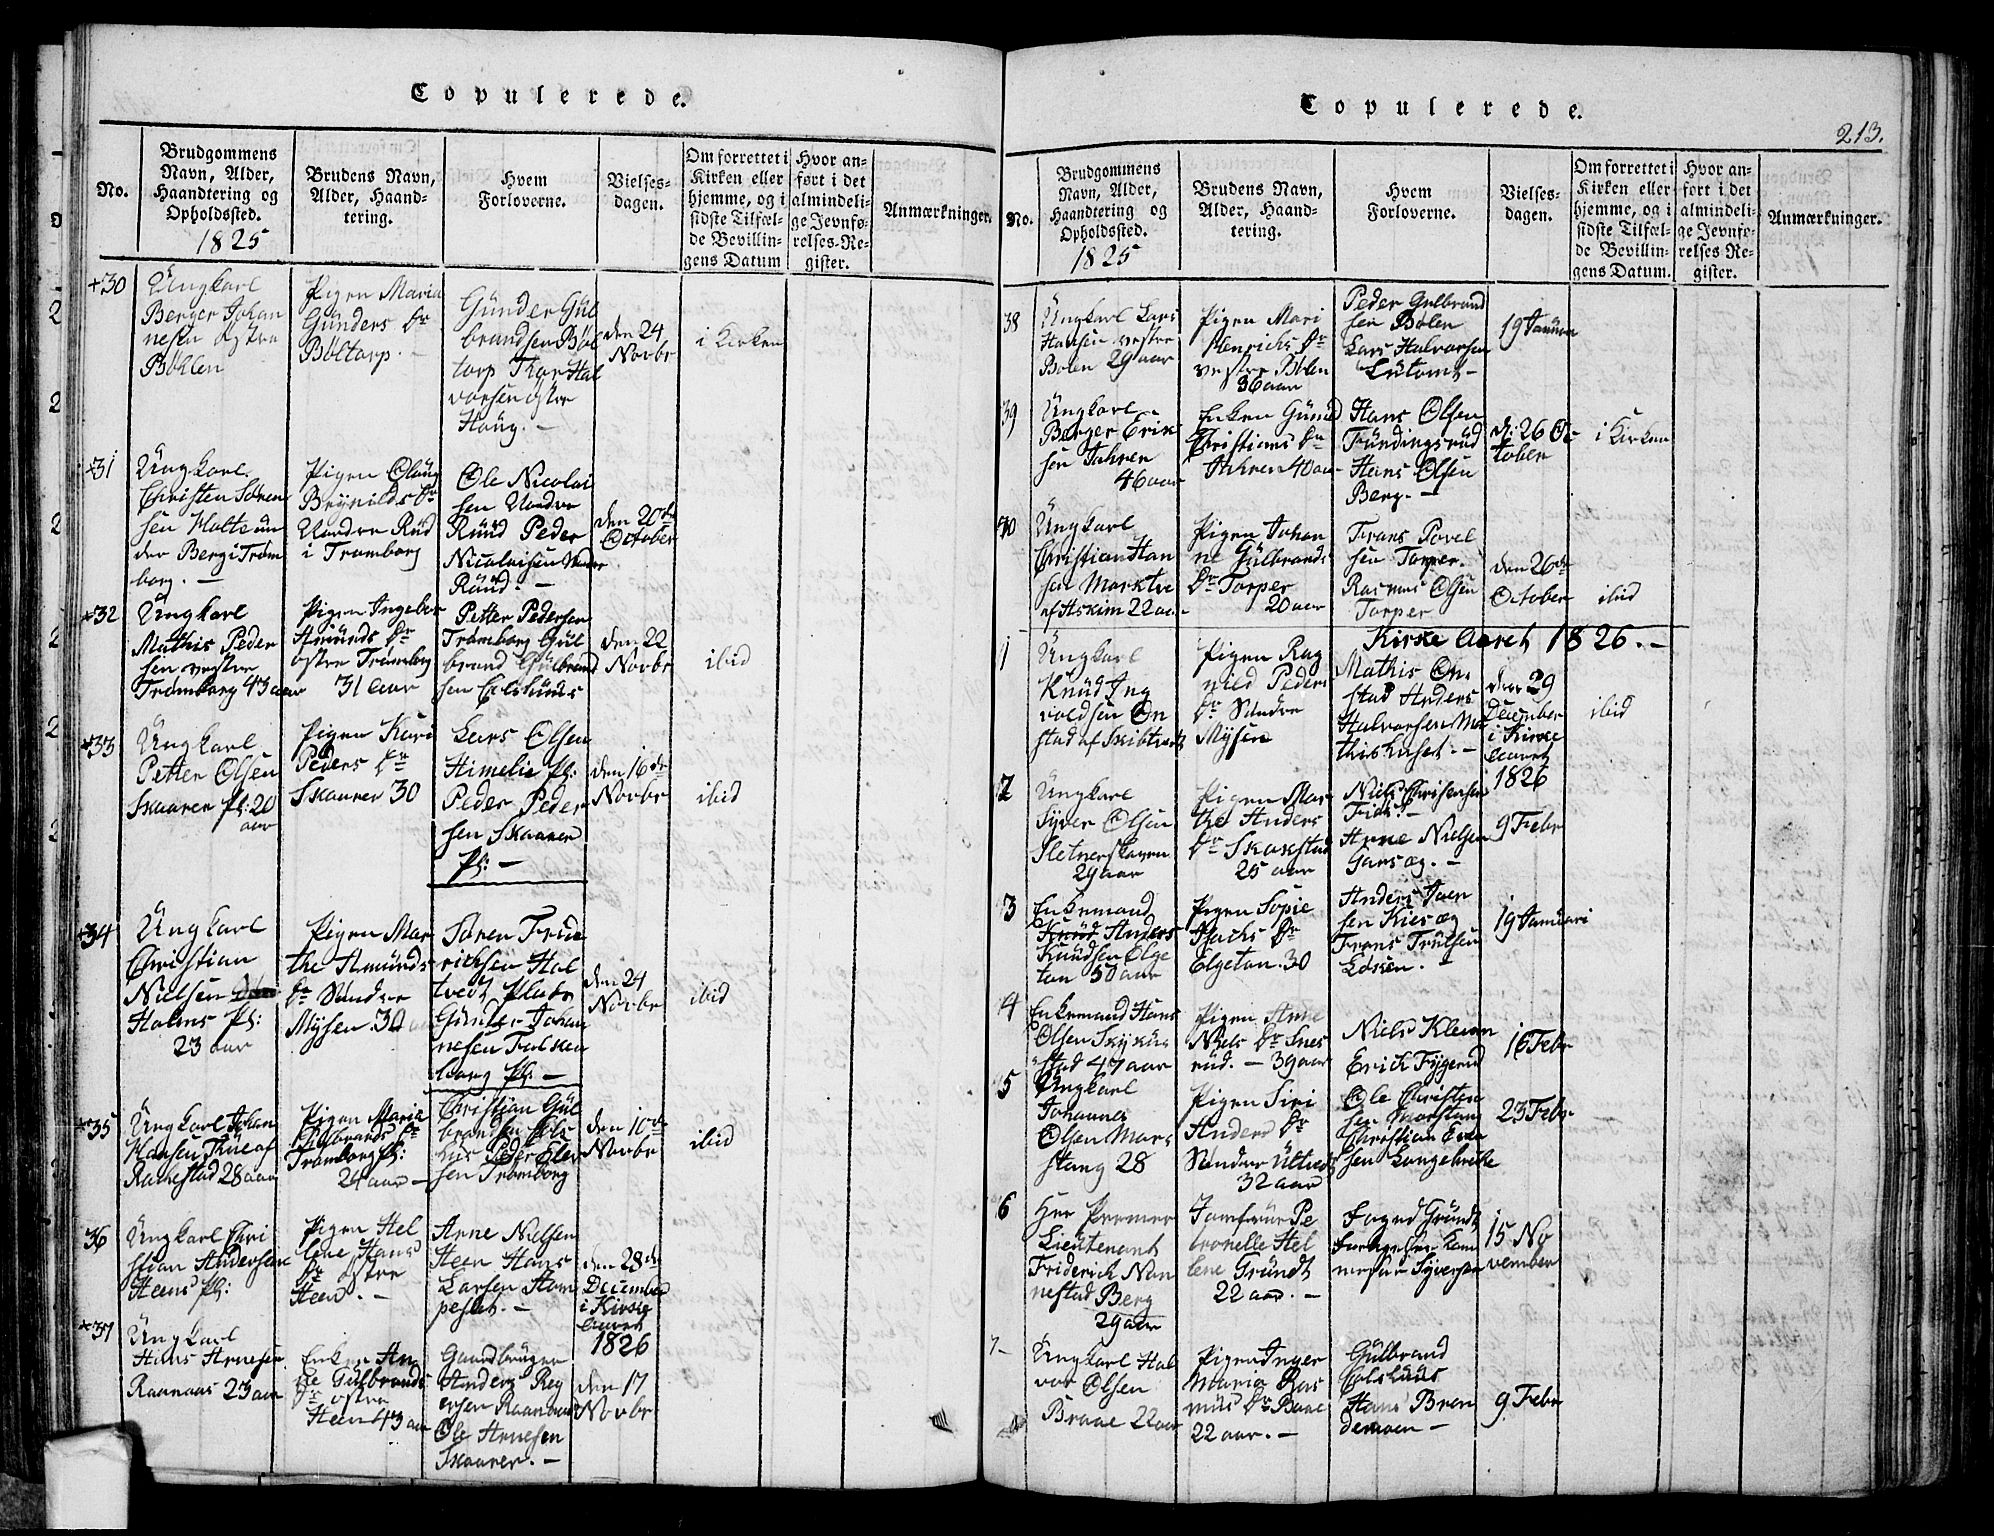 Copulerede.
No.
Brudgommens
Navn, Alder,
Haandtering og
Opholdssted.
1825
Brudens Navn,
Alder, Haand-
tering.
Hvem
Forloverne.
Vielses-
dagen.
Om forrettet i
Kirken eller
hjemme, og i
sidste Tilfæl-
de Bevillin-
gens Datum
Hvor an-
ført i det
almindeli-
ge Jevnfø-
relses-Re-
gister.
Anmærkninger.
+30
Ungkarl
Berger Johan
nesen østre
Bøhlen
Pigen Maria
Gunders Dr
Bøltorp. -
Gunder Gul
brandsen Bøl
torp Thor Hal
vorsen østre
Haug. -
den 24
Novbr
i Kirken
+31
Ungkarl
Christen Søren
sen Holts un
der Berg i Trøm
borg. -
Pigen Olaug
Brynilds Dr
Nordre Rud
i Tromborg
Ole Nicolai
sen Nordre
Ruud Peder
Nicolaisen
Ruud. -
den 20de
October
+32
Ungkarl
Mathis Peder
sen vestre
Trømborg 43 aar
Pigen Ingebor
Amunds Dr
østre Trømborg
31 aar
Petter Pedersen
Trømborg Gul
brand Gulbrand
sen Eelshuus
den 22
Novbr
ibid
+33
Ungkarl
Petter Olsen
Skaarer Pl: 20
aar
Pigen Kari
Peders Dr
Skaarer 30
Lars Olsen
Himelie Pl:
Peder Peder
sen Skaarer
Pl: -
den 16de
Novbr
ibid
+34
Ungkarl
Christian
Nielsen
Holms Pl:
23 aar
Pigen Mar
the Amunds
Dr Søndre
Mysen 30 aar
Søren Fride
richsen Hal
tvedt Plads
Gunder Johan
nesen Falken
borg Pl: -
den 24
Novbr
ibid
+35
Ungkarl Johan
Hansen Thue af
Rachestad 28 aar
Pigen Maria
Gulbrands Dr
Tromborg Pl:
24 aar -
Christian Gul
brandsen Eels
huus Peder Elev
sen Tromborg
den 10de
Novbr
ibid
36
Ungkarl Chri
stian Andersen
Heens Pl:
Pigen Hel
lene Hans
Dr østre
Heen. -
Arne Nielsen
Heen Hans
Larsen Hom
peset. -
den 28de
December
i Kirke
Aaret
1826
+37
Ungkarl
Hans Arnesen
Raanaas 23 aar
Enken An
ne Gulbrands
Dr østre
Heen 43 aar
Gaardbruger
Anders Rey
ersen Raanaas
Ole Arnesen
Skaarer. -
den 17
Novbr
Copulerede.
213.
No.
Brudgommens
Navn, Alder,
Haandtering og
Opholdssted.
1825
Brudens Navn,
Alder, Haand-
tering.
Hvem
Forloverne.
Vielses-
dagen.
Om forrettet i
Kirken eller
hjemme, og i
sidste Tilfæl-
de Bevillin-
gens Datum.
Hvor an-
ført i det
almindeli-
ge Jevnfø-
relses Re-
gister.
Anmærkninger.
38
Ungkarl Lars
Hansen vestre
Bølen 29 aar
Pigen Mari
Henrichs Dr
vestre Bølen
36 aar
Peder Gulbrand
sen Bølen
Lars Halvorsen
Lutoms -
19 Januar
39
Ungkarl
Berger Erik
sen Jahren
46 aar
Enken Gunild
Christians Dr
Jahren 40 aar
Hans Olsen
Fundingsrud
Hans Olsen
Berg. -
d: 26 Oc
tober
i Kirken
40
Ungkarl
Christian Han
sen Marktve
af Askim 22 aar
Pigen Johan
ne Gulbrands
Dr Torper
20 aar
Frans Povel
sen Torper.
Rasmus Olsen
Torper
den 26de
October
ibid
Kirke Aaret 1826. -
1
Ungkarl
Knud Ing
voldsen On
stad af Skibtvet
Pigen Rag
nild Peders
Dr Søndre
Mysen
Mathis On
stad Anders
Halvorsen Ma
thishuset. -
den 29
December
i Kirke
Aaret
1826
ibid
2
Ungkarl
Syver Olsen
Sletnerskogen
29 aar
Pigen Mar
the Anders
Dr Skakstad
25 aar
Niels Christensen
Arne Nielsen
Garsæg. -
9 Febr
3
Enkemand
Anders
Knudsen Elge
ton 50 aar
Pigen Sopie
Isachs Dr
Elgetun. 30
Anders Iver
sen Kiesæg
Frans Trulsen
19 Januari
4
Enkemand Hans
Olsen Skyku
stad 47 aar
Pigen Anne
Niels Dr Snes
rud. - 39 aar
Niels Klemm
Erick Fygerud
16 Febr
5
Ungkarl
Johannes
Olsen Mors
stang 28
Pigen Siri
Anders Dr
Søndre Ultvedt
32 aar
Ole Christen
sen Morstang
Christian Even
sen Langebrike
23 Febr
6
Herr Premier
Lieutenant
Friderick Nan
nestad Berg
29 aar
Jomfrue Pe
tronelle Hel
lene Grundt
22 aar. -
Foged Grundt
15 No
vember
7-
Ungkarl Hal
vor Olsen
Braae 22 aar
Pigen Inger
Maria Ras
mus Dr Baae
22 aar. -
Gulbrand
Eelshuus
Hans Bren
demoen -
9 Febr